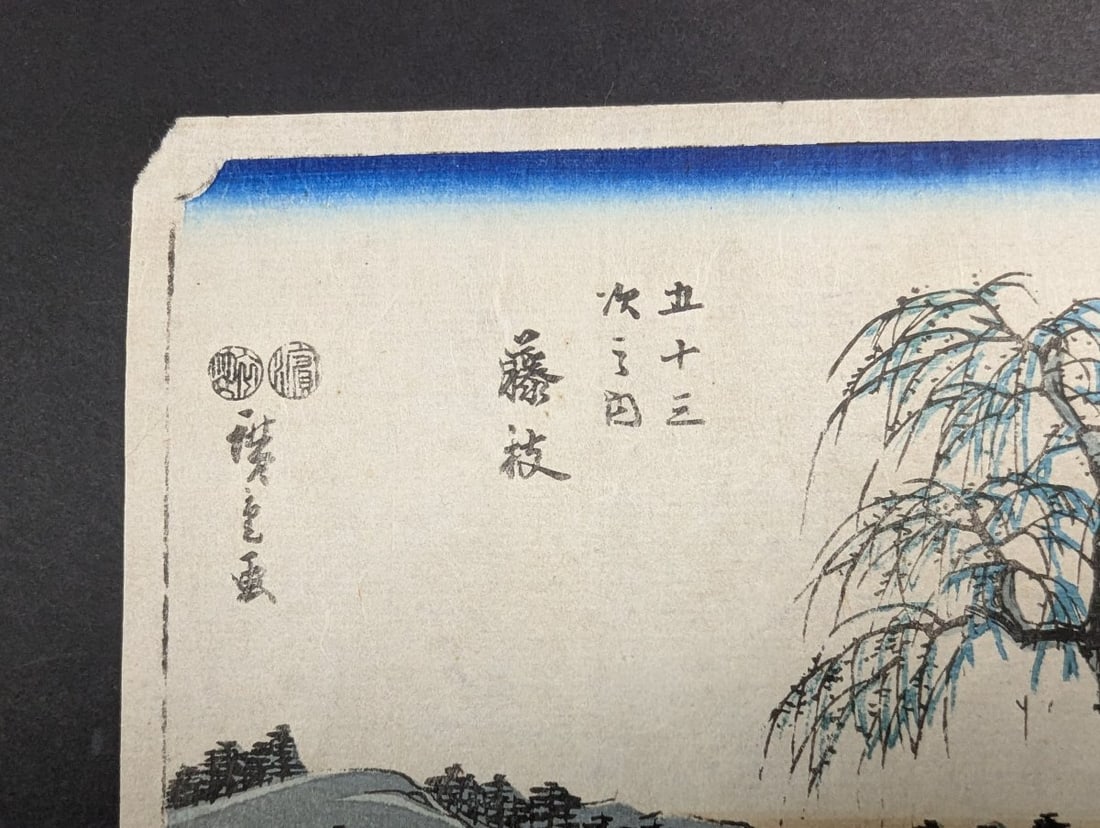 五十三
次之圖
藤枝
濱
廣重画